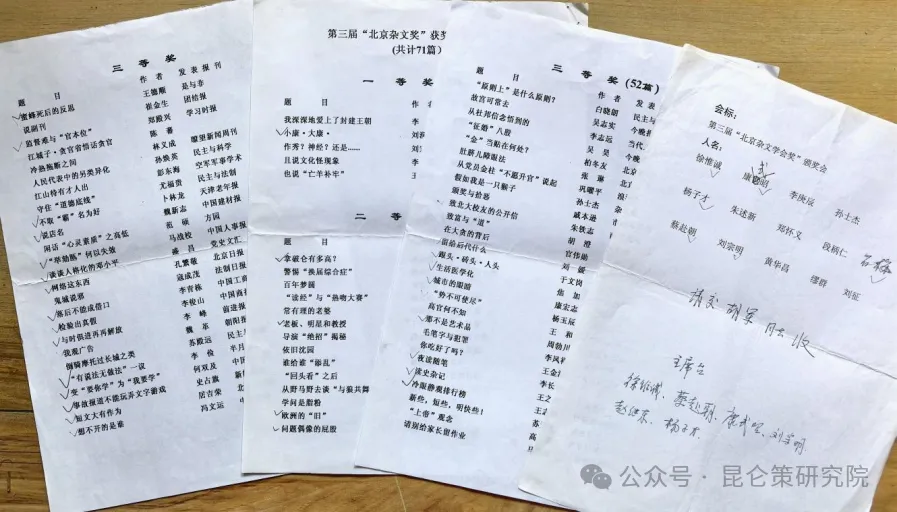 三 等 奖
题 目 作 者 发 表 报 刊
蜜蜂死后的反思 王德顺 是与非
说副刊 崔金生 团结报
监督难与“官本位” 郑殿兴 学习时报
江城子·贪官省悟话贪官 陈 善
冷热拖厕之间 林义成 瞭望新闻周刊
人民代表中的另类异化 孙焕英 民主与科学
红山待有才人出 彭东海 空军军事学术
守住“道德底线” 尤福贵 民主与法制
不取“霸”名为好 卜林龙 天津老年报
说店名 魏新志 中国建材报
闲话“心灵素质”之高低 范 硕 方园
“烨劲勰”何以失效 马战校 中国人事报
谈谈人格化的邓小平 桑 昌 党史文汇
网络这东西 孔繁敬 北京日报
鬼城说邪 寇成茂 法制日报
落后不能成借口 李青栋 中国工商
检验出真假 李俊山 中国商
与时俱进再再解放 李 峰 前进报
我观广告 魏 革 朝阳报
倒骑摩托过长城之类 苏殿远 民主
“有说法无做法”一说 李 俭 半月
变“要你学”为“我要学” 何双及 中国
事故报道不能玩弄文字游戏 史占旗 新
短文大有作为 居吉荣 北
想不开的是谁 冯文运 中
第三届“北京杂文奖”获奖
(共计71篇)
一 等 奖
题 目
我深深地爱上了封建王朝 李
小康·大康· 刘
作秀？神经？还是…… 刘
且说文化怪现象 李
也说“亡羊补牢” 王
二 等 奖
题 目
拿破仑有多高？
警惕“换届综合症”
百年梦圆
“读经”与“热吻大赛”
常有理的老婆
老板、明星和教授
导演“绝招”揭秘
依旧沈园
谁给谁“添乱”
“回头看”之后
从野马野去谈“与狼共舞
学何是脂粉
欧洲的“旧”
问题偶像的屁股
三 等 奖 (52篇)
题 目 作 者 发 表
“原则上”是什么原则？ 白晓朗 民主与
故宫可常去 吴志实 今晚报
从杜邦信念悟到的 李志远 当代
“征婚”八股 吴 昊 今晚
“金”当贴在何处？ 柏冬友 北京
肚脐儿障眼法 张 雁 北
从党员金柱“不愿开官”说起 巩曜平 浪
假如我是一只猴子 孙士杰 杂
颁奖与拾恶 戚本进 杂
致北大校友的公开信 朱铁志
致富与“道” 胡 澄
在大贪的背后 官伟勋
留给后代什么 刘 媛
碾头·砖头·人头 于文岗
生活医学化 焦 加
城市的眼睛 康宏志
“势不可使尽” 杨玉辰
高官何不知 王 和
邪不是艺术品 周勃
毛笔字与犯罪 李凤
你吃好了吗？ 王金
夜读随笔 李长
读史杂记 王之
冷眼静观排行榜 王
新些，短些，明快些！ 苏
“上帝”观念 高
请别给家长留作业 旦
会标：
第三届“北京杂文学会奖”颁奖会
人名：
徐惟诚 康式昭 李庚辰 孙士杰
杨子才 朱述新 郑怀义 段柄仁
蔡赴朝 刘宗明 黄华昌 缪群 刘征
名椿
请交 胡军 同志收
主席台
徐惟诚、蔡赴朝、康式昭、刘宗明、
赵继东、杨子才
公众号 · 昆仑策研究院